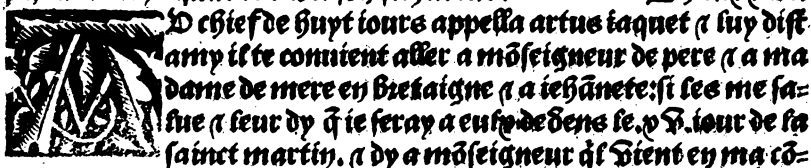 AD chief de huyt iours appella artus iaquet ⁊ luy dist
amy il te conuient aller a mõseigneur de pere ⁊ a ma
dame de mere en bretaigne ⁊ a iehãnete: si les me sa-
lue ⁊ leur dy q̃ ie feray a eulx de dens le. xv. iour de la
sainct martin. ⁊ dy a mõseigneur q̃l vient en ma cõ-